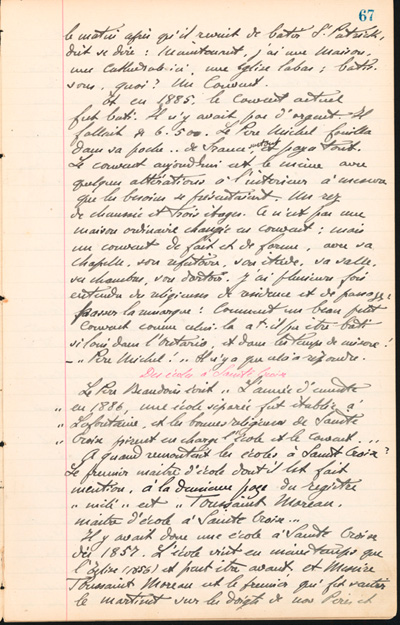 67
le matin après qu'il revint de bâtir St. Patrick,
dût se dire : Maintenant, j'ai une maison,
une cathédrale ici, une église labas ; bâtis-
sons, quoi? Un Couvent.
Et en 1885, le couvent actuel
fut bâti. Il n'y avait pas d'argent. Il
fallait $ 6.500. Le Père Michel fouilla
dans sa poche .. de France et paya tout.
Le couvent aujourd'hui est le même avec
quelques altérations à l'intérieur à mesure
que les besoins se présentaient. Un rez
de chaussée et trois étages. Ce n'est pas une
maison ordinaire changée en couvent ; mais
un couvent de fait et de forme, avec sa
chapelle, son réfectoire, son étude, sa salle,
ses chambres, son dortoir. J'ai plusieurs fois
entendu des religieuses de résidence et de passage
passer la remarque : Comment un beau petit
couvent comme celui-là a-t-il pu être bâti
si loin dans l'Ontario, et dans les temps de misère !
— „ Père Michel ! „ Il n'y a que cela à répondre.
Des écoles à Sainte Croix
Le Père Beaudoin écrit „ L'année d'ensuite
„ en 1886, une école séparée fut établie à
„ Lafontaine, et les bonnes religieuses de Sainte
„ Croix prirent en charge l'école et le couvent. ...
A quand remontent les écoles à Sainte Croix?
Le premier maître d'école dont il est fait
mention, à la deuxième page du registre
„ est „ Toussaint Moreau,
maître d'école à Sainte Croix ..
Il y avait donc une école à Sainte Croix
dès 1857. L'école vint en même temps que
l'Église (1856) et peut être avant et Messire
Toussaint Moreau est le premier qui fit sauter
le martinet sur les doigts de nos Pères et